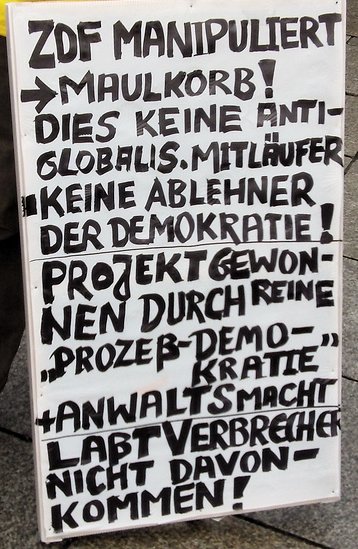 ZDF MANIPULIERT
→MAULKORB!
DIES KEINE ANTI-
GLOBALIS. MITLÄUFER
KEINE ABLEHNER
DER DEMOKRATIE!
PROJEKT GEWON-
NEN DURCH REINE
„PROZEß-DEMO-
KRATIE”
+ANWALTSMACHT
LABT VERBRECHER
NICHT DAVON-
KOMMEN!